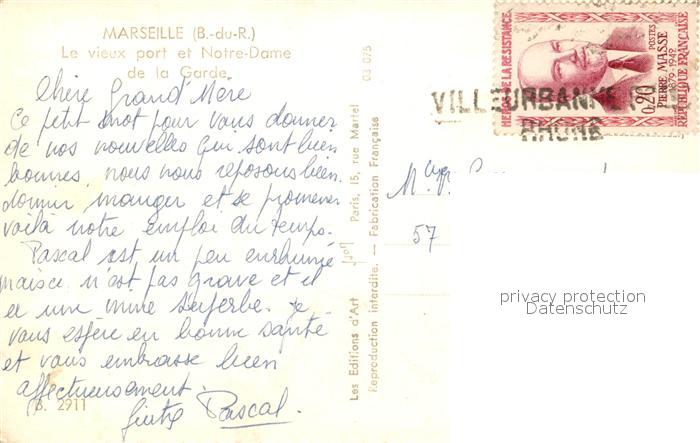 MARSEILLE (B.-du-R.)
Le vieux port et Notre-Dame
de la Garde
Chère Grand'Mère
Ce petit mot pour vous donner
de nos nouvelles qui sont bien
bonnes. nous nous reposons bien.
dormir manger et se promener
voilà notre emploi du temps.
Pascal est un peu enrhumé
mais ce n'est pas grave et il
a une mine superbe. je
vous espère en bonne santé
et vous embrasse bien
affectueusement.
Pascal.
B. 2911
03 075
Les Editions d'Art Paris, 15, rue Martel
Reproduction interdite. — Fabrication Française
HEROS DE LA RESISTANCE
PIERRE MASSE
1879-1942
POSTES
REPUBLIQUE FRANÇAISE
0,20
VILLEURBANNE
RHONE
57
privacy protection
Datenschutz